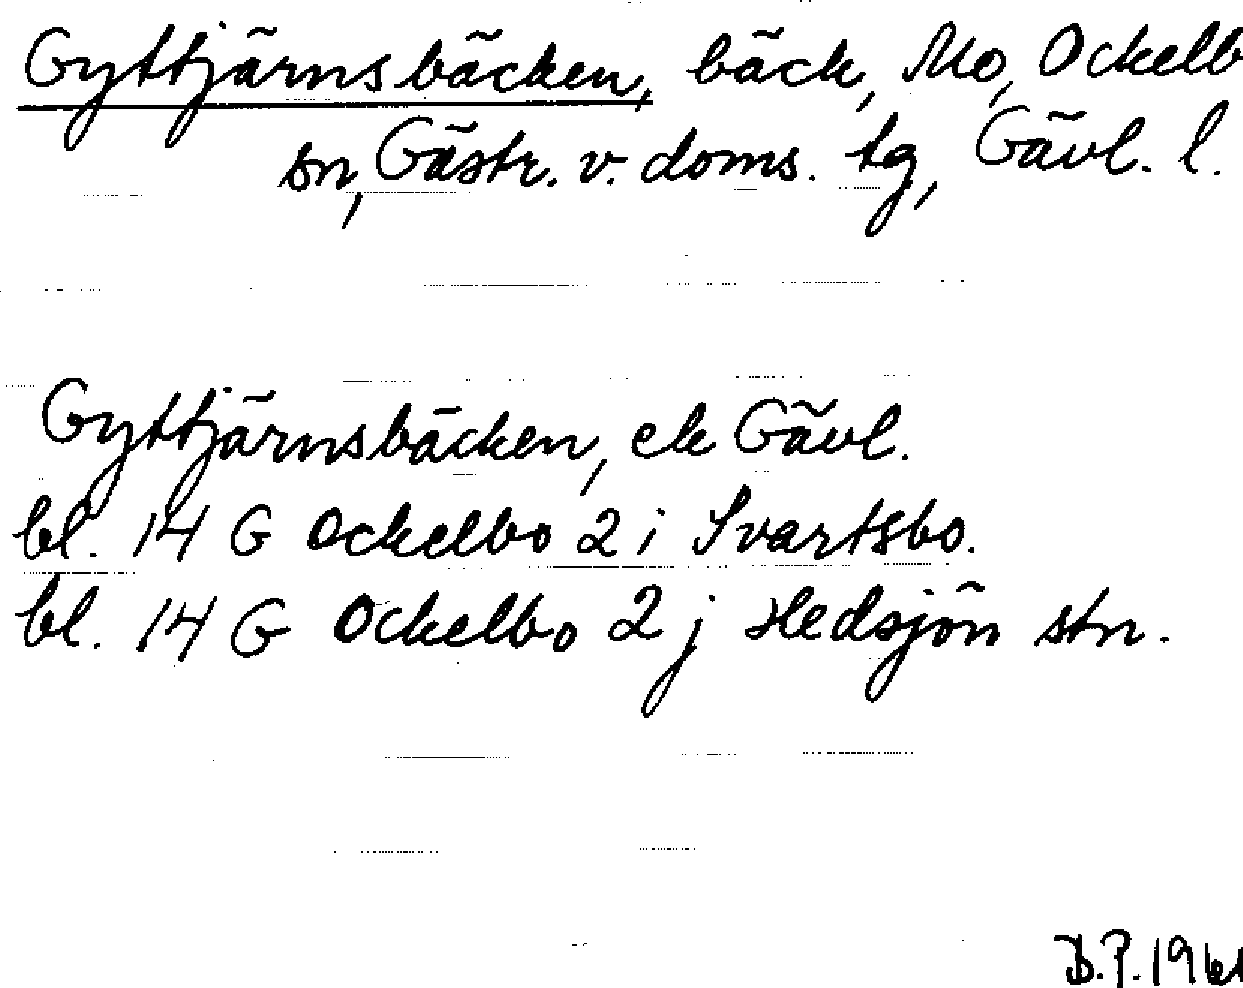 Gyttjärnsbäcken, bäck, Mo, Ockelb
sn, Gästr. v. doms. tg, Gävl. l.
Gyttjärnsbäcken, ek Gävl.
bl. 14 G Ockelbo 2 i Svartsbo.
bl. 14 G Ockelbo 2 j Hedsjön stn.
B.P. 1961